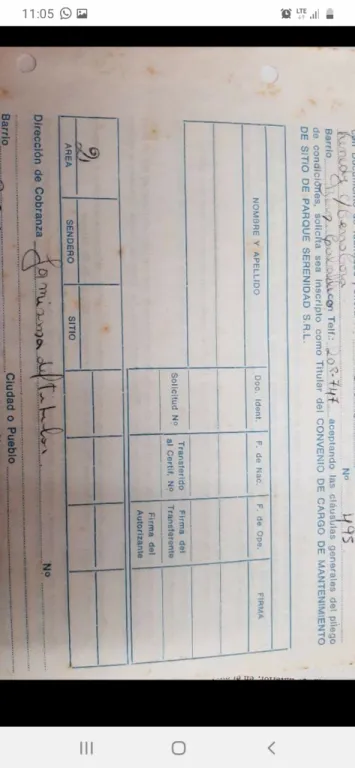 11:05
LTE
Nº 495
Barrio con Telf.: 208-747 aceptando las cláusulas generales del pliego
de condiciones, solicita sea inscripto como Titular del CONVENIO DE CARGO DE MANTENIMIENTO
DE SITIO DE PARQUE SERENIDAD S.R.L.
NOMBRE Y APELLIDO Doc. Ident. F. de Nac. F. de Ope. FIRMA
Solicitud Nº Transferido al Certif. Nº Firma del Transferente Firma del Autorizante
21
AREA SENDERO SITIO
Dirección de Cobranza La misma del titular Nº
Barrio Ciudad o Pueblo